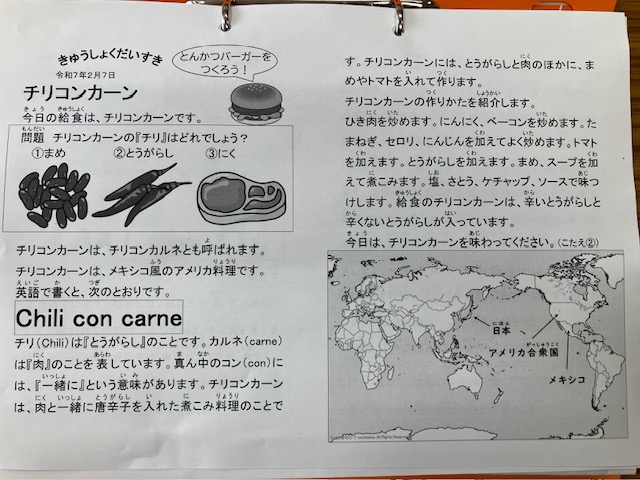 きゅうしょくだいすき
令和7年2月7日
とんかつバーガーを
つくろう！
チリコンカーン
今日の給食は、チリコンカーンです。
問題　チリコンカーンの『チリ』はどれでしょう？
①まめ　②とうがらし　③にく
チリコンカーンは、チリコンカルネとも呼ばれます。
チリコンカーンは、メキシコ風のアメリカ料理です。
英語で書くと、次のとおりです。
Chili con carne
チリ（Chili）は『とうがらし』のことです。カルネ（carne）
は『肉』のことを表しています。真ん中のコン（con）に
は、『一緒に』という意味があります。チリコンカーン
は、肉と一緒に唐辛子を入れた煮こみ料理のことで
す。チリコンカーンには、とうがらしと肉のほかに、ま
めやトマトを入れて作ります。
チリコンカーンの作りかたを紹介します。
ひき肉を炒めます。にんにく、ベーコンを炒めます。た
まねぎ、セロリ、にんじんを加えてよく炒めます。トマト
を加えます。とうがらしを加えます。まめ、スープを加
えて煮こみます。塩、さとう、ケチャップ、ソースで味つ
けします。給食のチリコンカーンは、辛いとうがらしと
辛くないとうがらしが入っています。
今日は、チリコンカーンを味わってください。（こたえ②）
日本
アメリカ合衆国
メキシコ